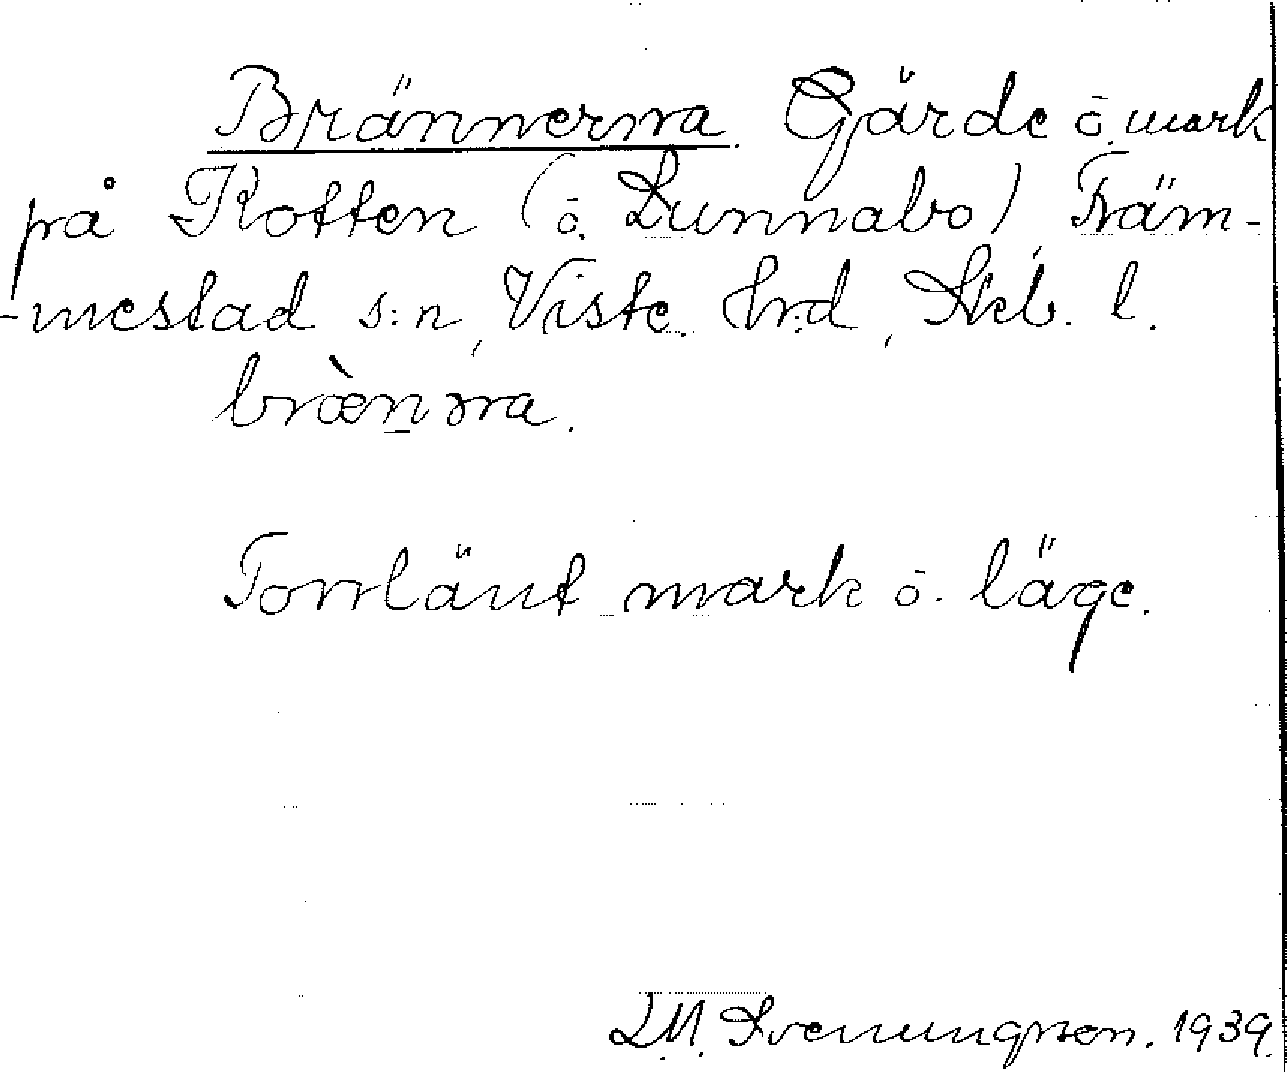 Brännerna. Gärde ō. mark
på Rotten (ō. Sunnabo) Främ-
-mestad s:n, Viste hrd, Skb. l.
bræ̀n̲ǝra.
Torrlänt mark ō. läge.
L.M. Svenungsson. 1939.